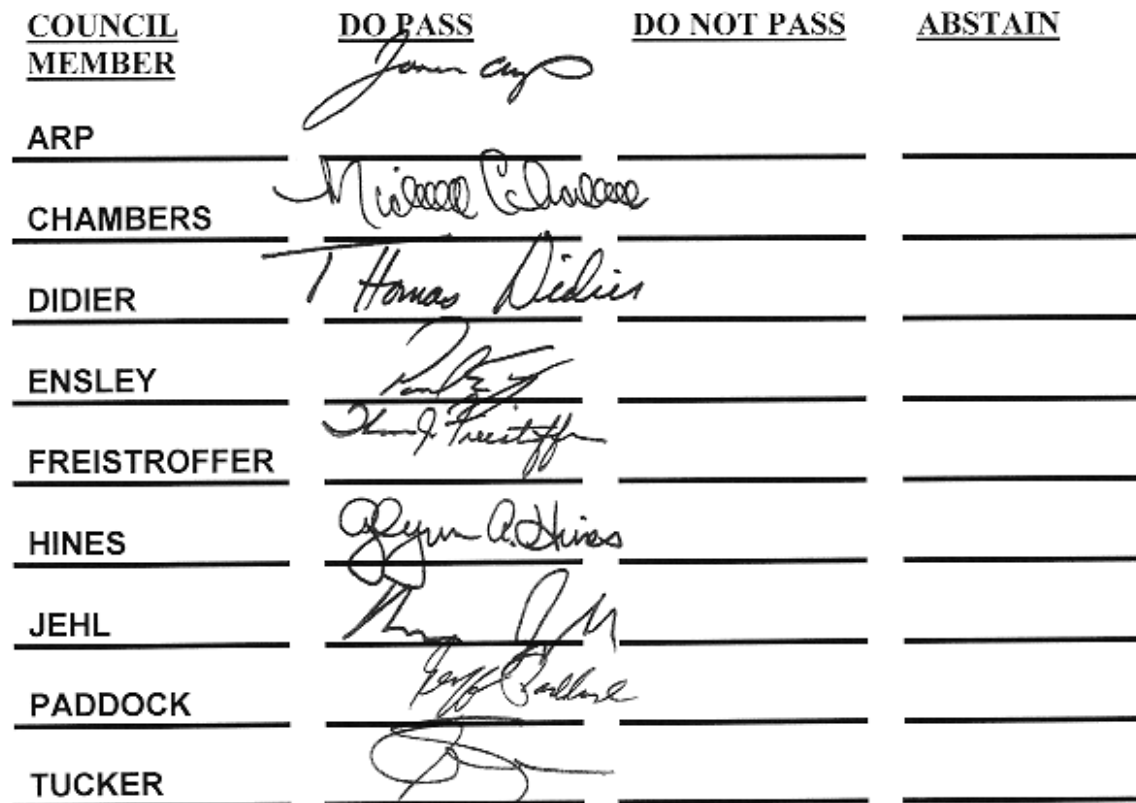 COUNCIL MEMBER DO PASS DO NOT PASS ABSTAIN
ARP Jason Arp
CHAMBERS Michelle Chambers
DIDIER Thomas Didier
ENSLEY Paul Ensley
FREISTROFFER Thomas J. Freistroffer
HINES Glynn A. Hines
JEHL
PADDOCK Geoff Paddock
TUCKER